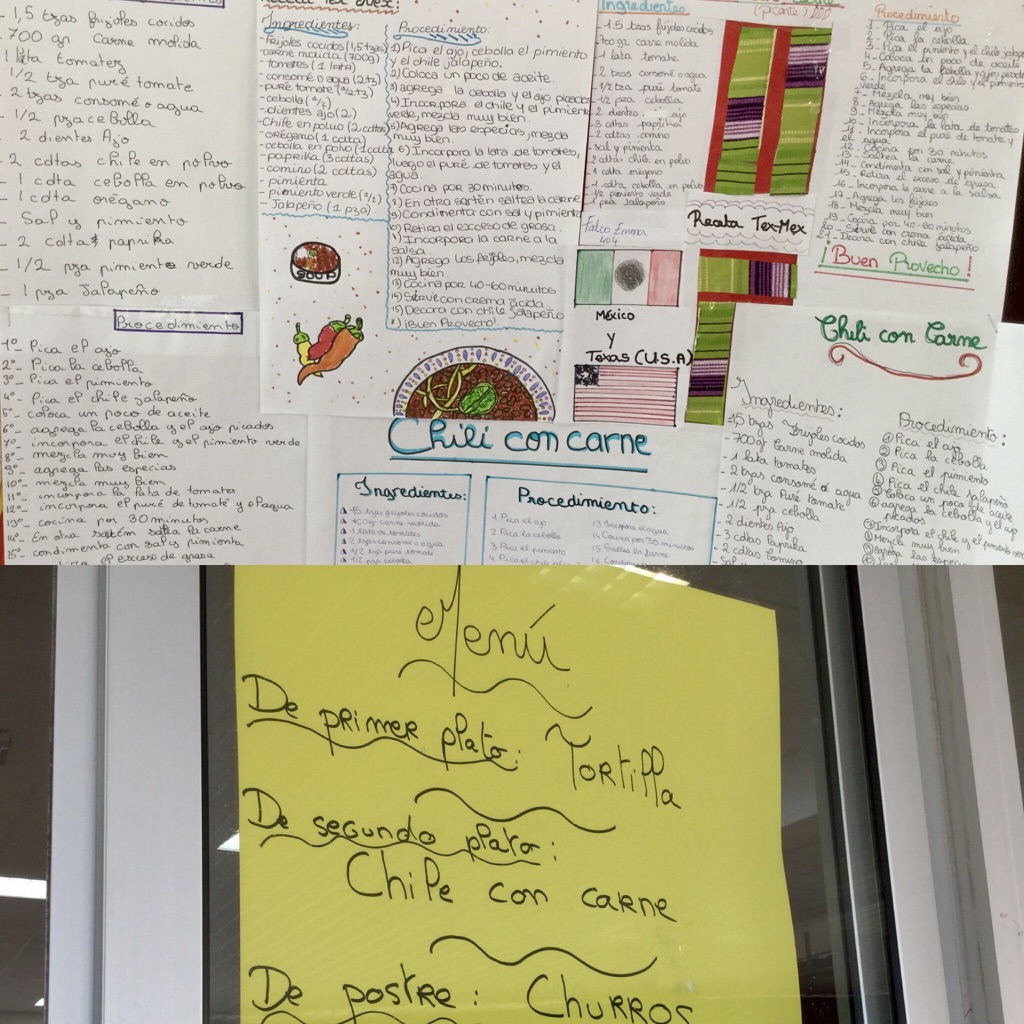 - 1,5 tzas frijoles cocidos
- 700 gr carne molida
1 lata tomatez
- 1/2 tza puré tomate
- 2 tzas consomé o agua
- 1/2 pza cebolla
- 2 dientes Ajo
- 2 cdtas chile en polvo
- 1 cdta cebolla en polvo
- 1 cdta orégano
- Sal y pimiento
- 2 paprika
- 1/2 pza pimiento verde
- 1 pza Jalapeño
Procedimiento
1º_ Pica el ajo
2º_ Pica la cebolla
3º_ Pica el pimiento
4º_ Pica el chile jalapeño
5º_ coloca un poco de aceite
6º_ agrega la cebolla y el ajo picados
7º_ incorpora el chile y el pimiento verde
8º_ mezcla muy bien
9º_ agrega las especias
10º_ mezcla muy bien
11º_ incorpora la lata de tomates
12º_ incorpora el puré de tomate y el agua
13º_ cocina por 30 minutos
14º_ En otra sartén la carne
15º_ condimenta con sal y pimienta
el exceso de grasa
Ingredientes:
frijoles cocidos (1,5 tzas)
carne molida (700g)
- tomates (1 lata)
- consomé o agua (2tz)
- puré tomate (1/2 tz)
- cebolla (1/2)
- dientes ajo (2)
- Chile en polvo (2 cdtas)
- orégano (1 cdta)
- cebolla en polvo (1 cdta)
- paprika (3 cdtas)
- comino (2 cdtas)
- pimienta
- pimiento verde (1/2)
- Jalapeño (1 pza)
SOUP
Procedimiento:
1) Pica el ajo, cebolla el pimiento
y el chile jalapeño,
2) Coloca un poco de aceite.
3) agrega la cebolla y el ajo picados
4) Incorpora el chile y el pimiento
verde, mezcla muy bien.
5) Agrega las especias, mezcla
muy bien.
6) Incorpora la lata de tomates,
luego el puré de tomates y el
agua.
7) Cocina por 30 minutos.
8) En otra sartén saltea la carne
9) Condimenta con sal y pimienta
10) Retira el exceso de grasa.
11) Incorpora la carne a la
salsa
12) Agrega los frijoles, mezcla
muy bien.
13) Cocina por 40-60 minutos
14) Sirve con crema ácida
15) Decora con chile jalapeño
¡Buen Provecho!
Ingredientes
(picante)
- 1.5 tzas frijoles cocidos
- 700 gr carne molida
- 1 lata tomate
- 2 tzas consomé o agua
- 1/2 tza puré tomate
- 1/2 pza cebolla
- 2 dientes ajo
- 3 cdtas paprika
- 2 cdtas comino
- sal y pimienta
- 2 cdtas chile en polvo
- 1 cdta orégano
- 1 cdta cebolla en polvo
- 1/2 pimiento verde
- 1 pza Jalapeño
Falco Emma
404
Receta Tex-Mex
México
y
Texas (U.S.A)
Procedimiento
1. Pica el ajo
2. Pica la cebolla
3. Pica el pimiento y el chile
4. Coloca un poco de aceite
5. Agrega la cebolla y ajos
6. Incorpora el chile y el pimiento
verde
7. Mezcla muy bien
8. Agrega las especias
9. Mezcla muy bien
10. Incorpora la lata de tomates
11. Incorpora el puré de tomate y
el agua
12. Cocina por 30 minutos
13. Saltea la carne
14. Condimenta con sal y pimienta
15. Retira el exceso de grasa
16. Incorpora la carne a la salsa
17. Agrega los frijoles
18. Mezcla muy bien
19. Cocina por 40-60 minutos
20. Sirve con crema ácida
21. Decora con chile jalapeño
¡Buen Provecho!
Chili con carne
Ingredientes:
1,5 tzas frijoles cocidos
700gr carne molida
1 lata de tomates
2 tzas consomé o agua
1/2 tza puré tomate
1/2 pza cebolla
Procedimiento:
1 Pica el ajo
2 Pica la cebolla
3 Pica el pimiento
13 Incorpora el agua
14 Cocina por 30 minutos
15 Saltea la carne
Chili con Carne
Ingredientes:
- 1,5 tzas frijoles cocidos
- 700gr carne molida
- 1 lata tomates
- 2 tzas consomé o agua
- 1/2 tza Puré tomate
- 1/2 pza cebolla
- 2 dientes Ajo
- 3 cdtas Paprika
- 2 cdtas Comino
Procedimiento:
① Pica el ajo
② Pica la cebolla
③ Pica el pimiento
④ Pica el chile jalapeño
⑤ Coloca un poco de aceite
⑥ agrega la cebolla y el ajo
picados
⑦ Incorpora el chile y el pimiento verde
⑧ Mezcla muy bien
Menú
De primer plato: Tortilla
De segundo plato:
Chile con carne
De postre: Churros